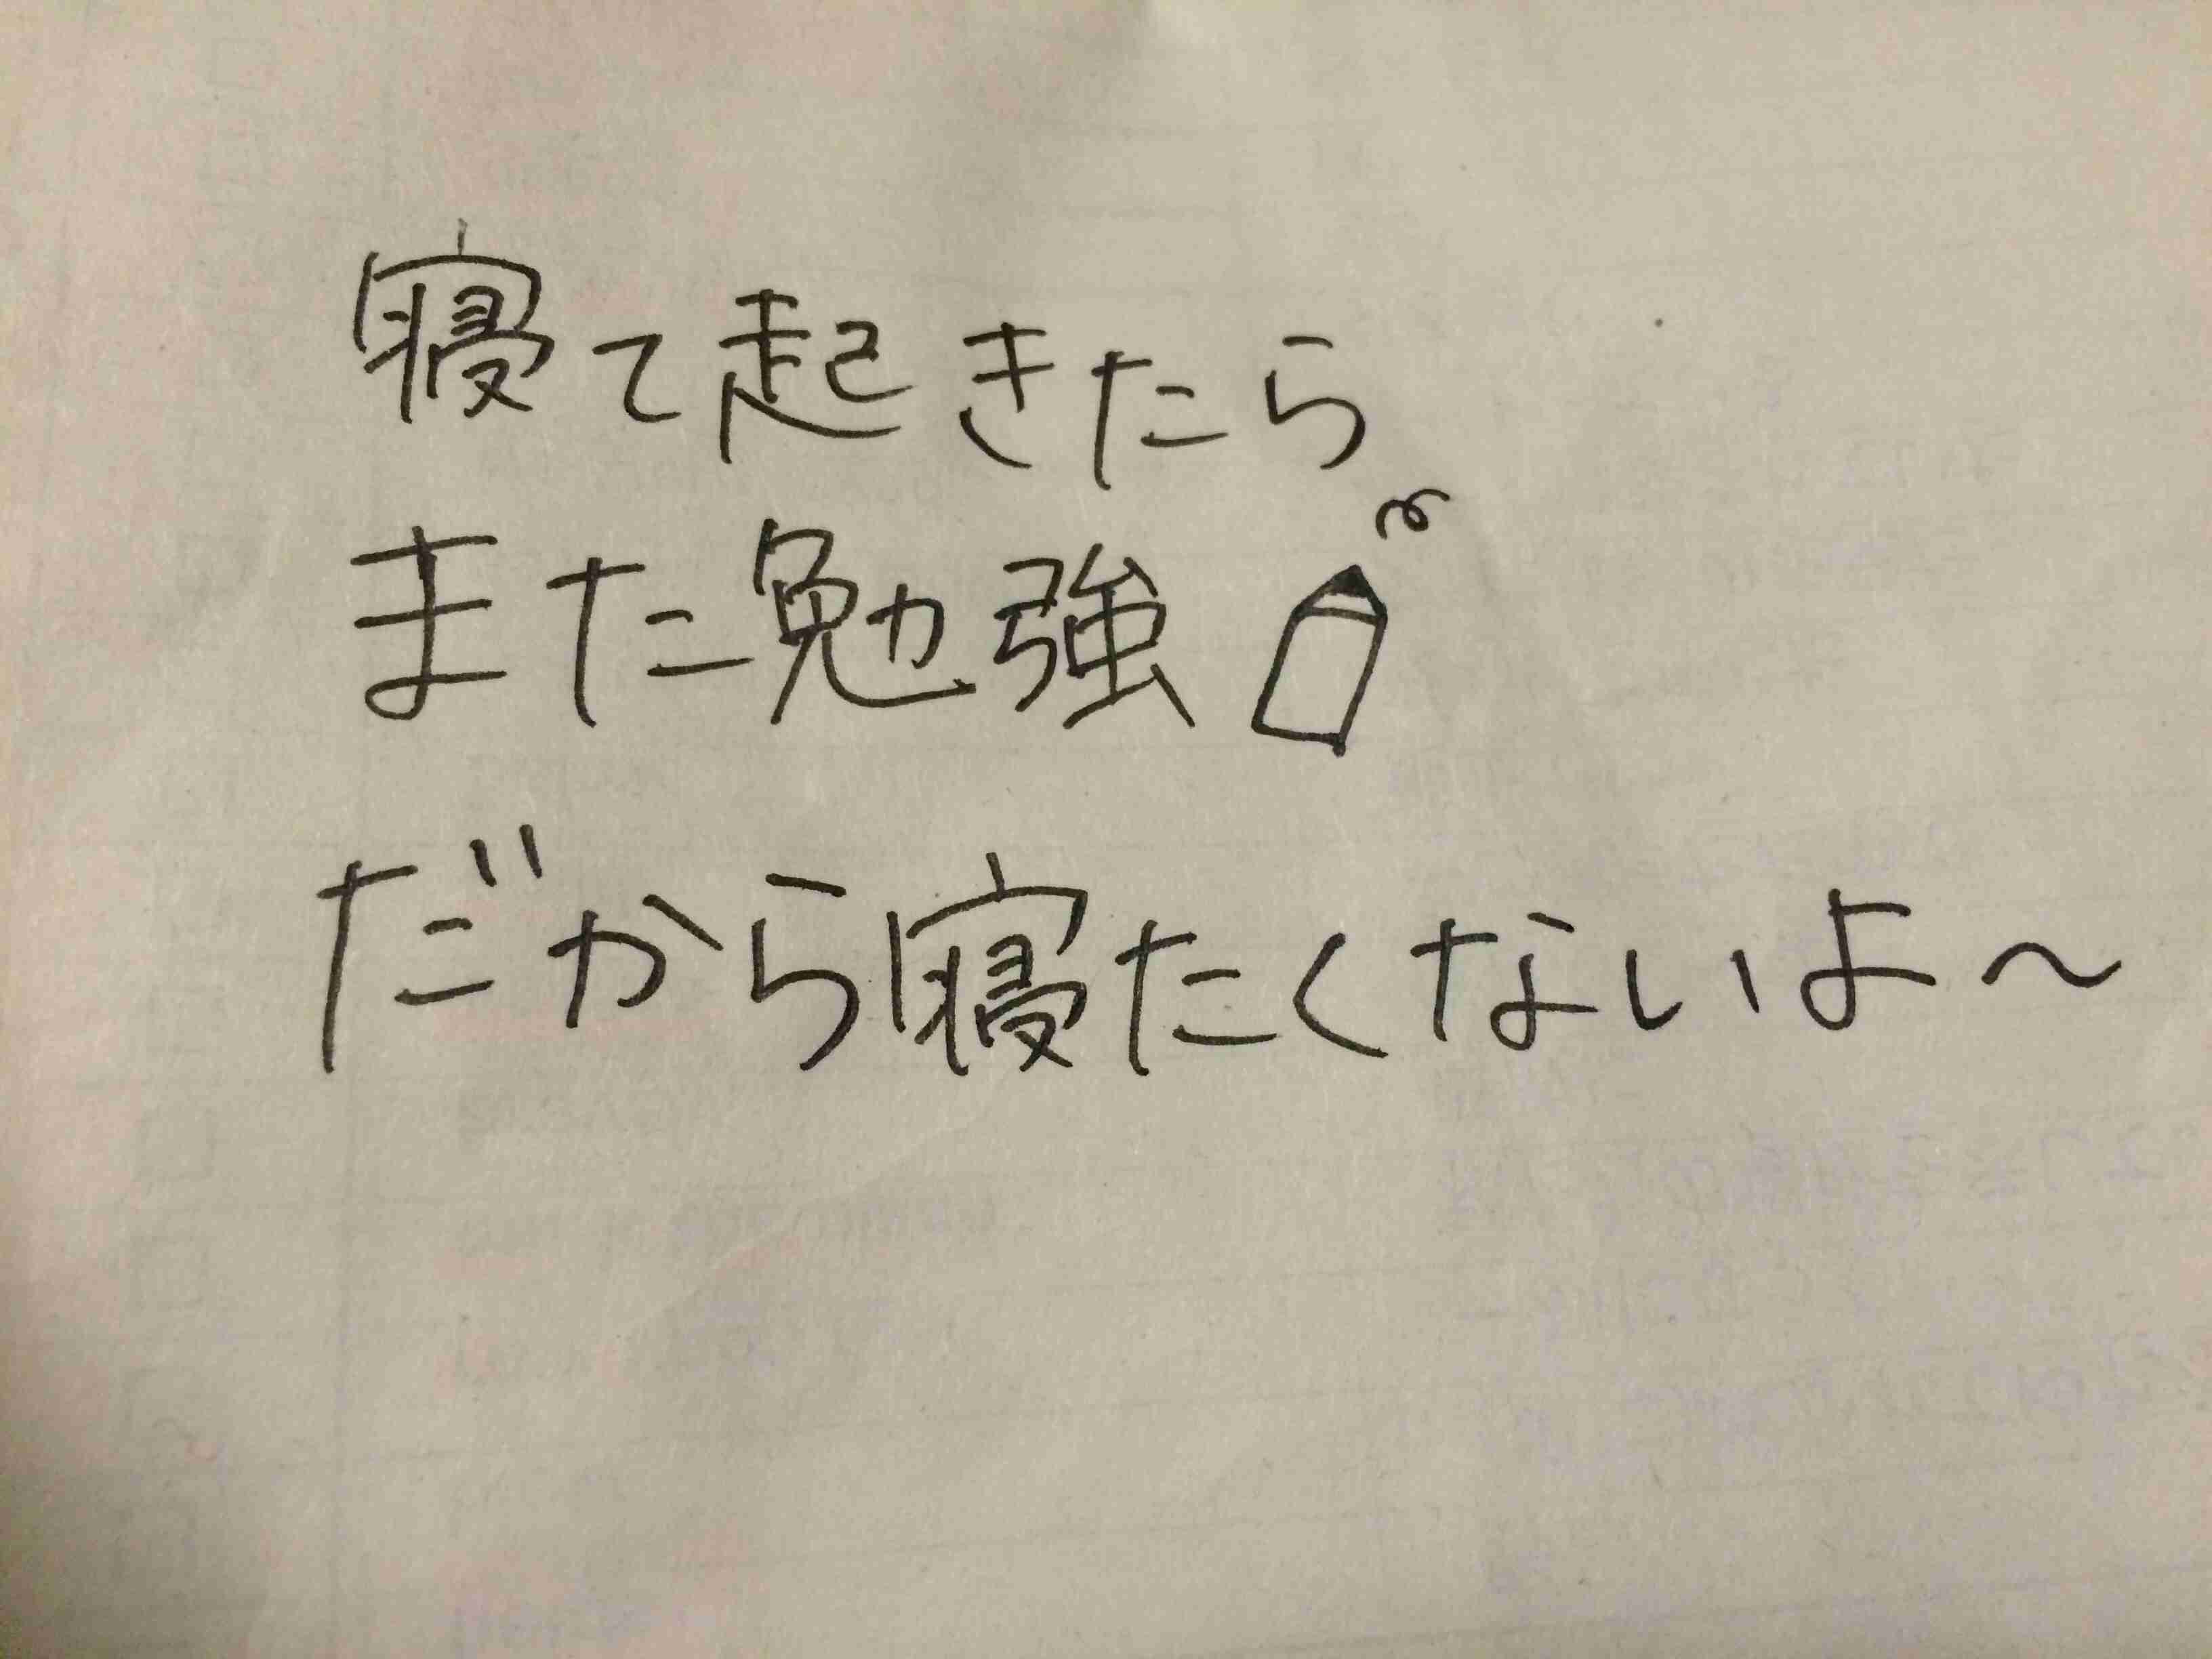 寝て起きたら
また勉強
だから寝たくないよ～